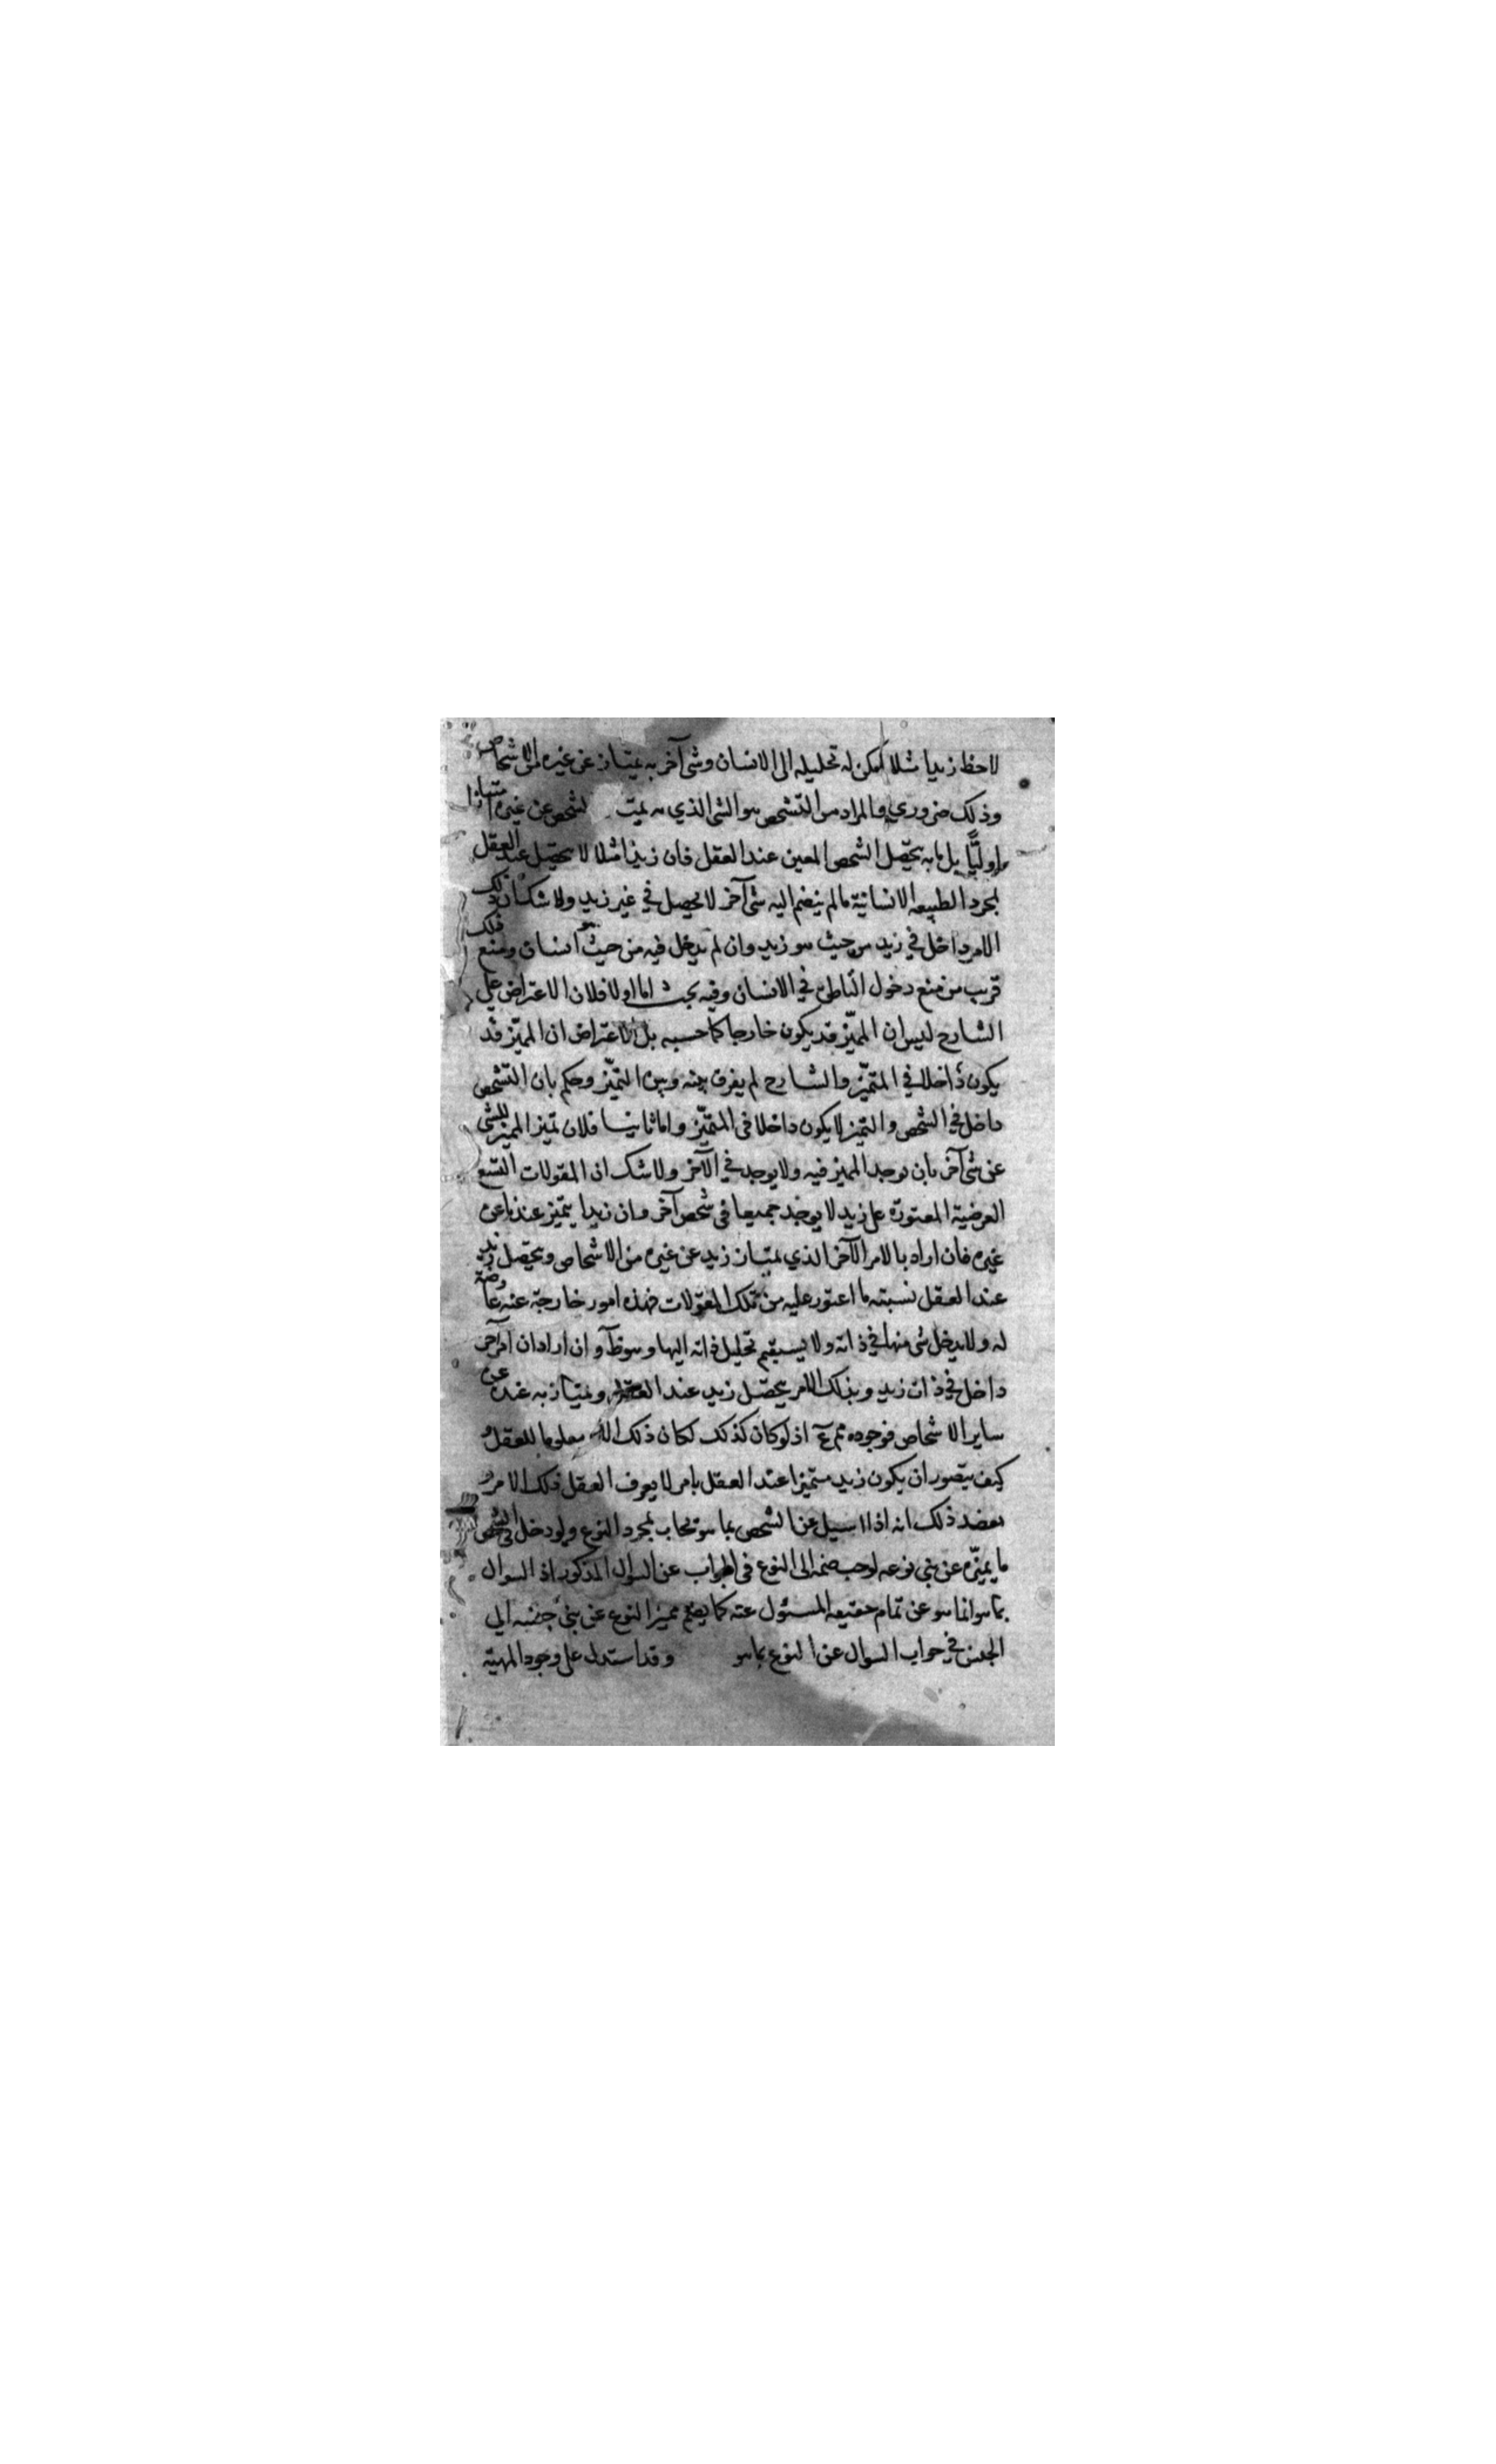 لاحظ زيدا مثلا امكن له تحليله الى الانسان وشئ آخر به يمتاز عن غيره من الاشخاص
وذلك ضروري والمراد من التشخص هو الشئ الذي به يمتـ لشخص عن غيره امتيازا
اوليا بل ما به يتحصل الشخص المعين عند العقل فان زيدا مثلا لا يتحصل عند العقل
بمجرد الطبيعه الانسانية مالم ينضم اليه شئ آخر لا يحصل في غير زيد ولا شك ان ذلك
الامر داخل في زيد من حيث هو زيد وان لم يدخل فيه من حيث هو انسان ومنع ذلك
قريب من منع دخول الناطق في الانسان وفيه بحث اما اولا فلان الاعتراض على
الشارح ليس ان المميّز قد يكون خارجا كما حسبه بل الاعتراض ان المميّز قد
يكون داخلا في المتميّز والشارح لم يفرق بينه وبين التميّز وحكم بان التشخص
داخل في الشخص والتميز لا يكون داخلا في المتميّز واما ثانيا فلان تميز المميز للشئ
عن شئ آخر بان يوجد المميز فيه ولا يوجد في الآخر ولا شك ان المقولات التسع
العرضية المعتورة على زيد لا يوجد جميعها في شخص آخر وان زيدا يتميز عندنا عن
غيره فان اراد بالامر الآخر الذي يمتاز زيد عن غيره من الاشخاص ويتحصل زيد
عند العقل نسبته ما اعتور عليه من تلك المقولات فهذه امور خارجة عنه عارضة
له ولا يدخل شئ منها في ذاته ولا يستقيم تحليل ذاته اليها وهو ظ وان اراد ان امرا آخر
داخل في ذات زيد وبذلك الامر يتحصل زيد عند العقل ويمتاز به عنده عن
ساير الاشخاص فوجوده مم اذ لو كان كذلك لكان ذلك معلوما للعقل و
كيف يتصور ان يكون زيد متميزا عند العقل بامر لا يعرف العقل ذلك الامر و
يعضد ذلك انه اذا سيل عن الشخص بما هو يجاب بمجرد النوع ولو دخل في الشخص
ما يميزه عن بني نوعه لوجب ضمه الى النوع في الجواب عن السوال المذكور اذ السوال
بما هو انما هو عن تمام حقيقه المسئول عنه كما يضم مميز النوع عن بني جنسه الى
الجنس في جواب السوال عن النوع بما هو وقد استدل على وجود المهية